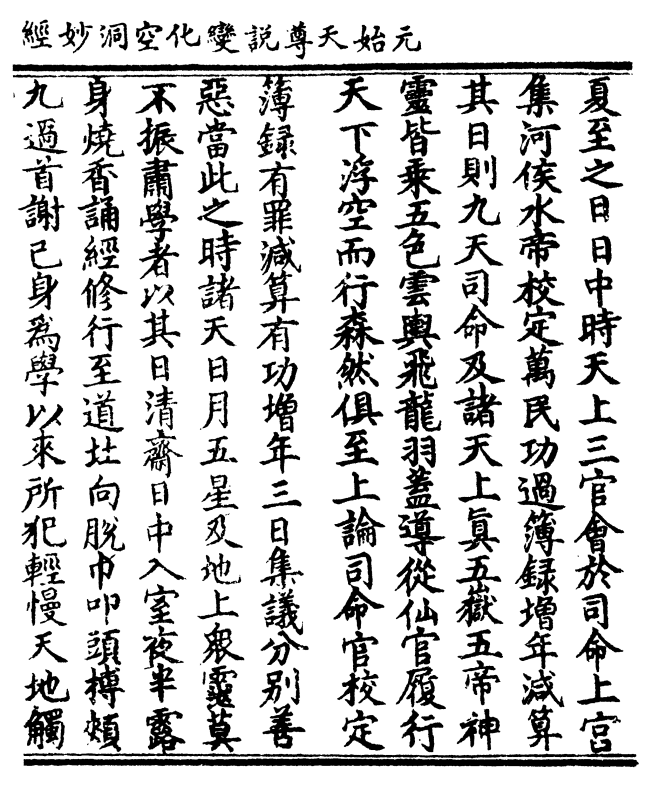 元始天尊説變化空洞妙經
夏至之日日中時天上三官會於司命上宮
集河侯水帝校定萬民功過簿録增年減算
其日則九天司命及諸天上眞五嶽五帝神
靈皆乗五色雲輿飛龍羽蓋導從仙官履行
天下浮空而行森然俱至上論司命官校定
簿録有罪減算有功增年三日集議分別善
惡當此之時諸天日月五星及地上衆靈莫
不振肅學者以其日清齋日中入室夜半露
身燒香誦經修行至道北向脫巾叩頭搏頰
九過首謝己身爲學以來所犯輕慢天地觸